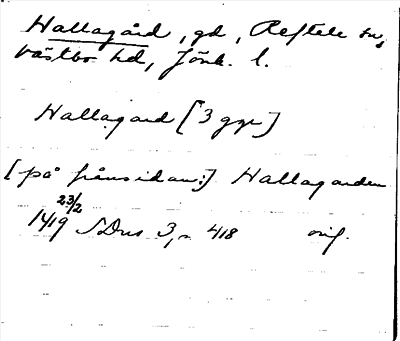 Hallagård, gd, Reftele sn,
Västbo hd, Jönk. l.
Hallagard [3 ggr]
[på frånsidan:] Hallagarden
1419 23/2 SDns 3, 418 orig.